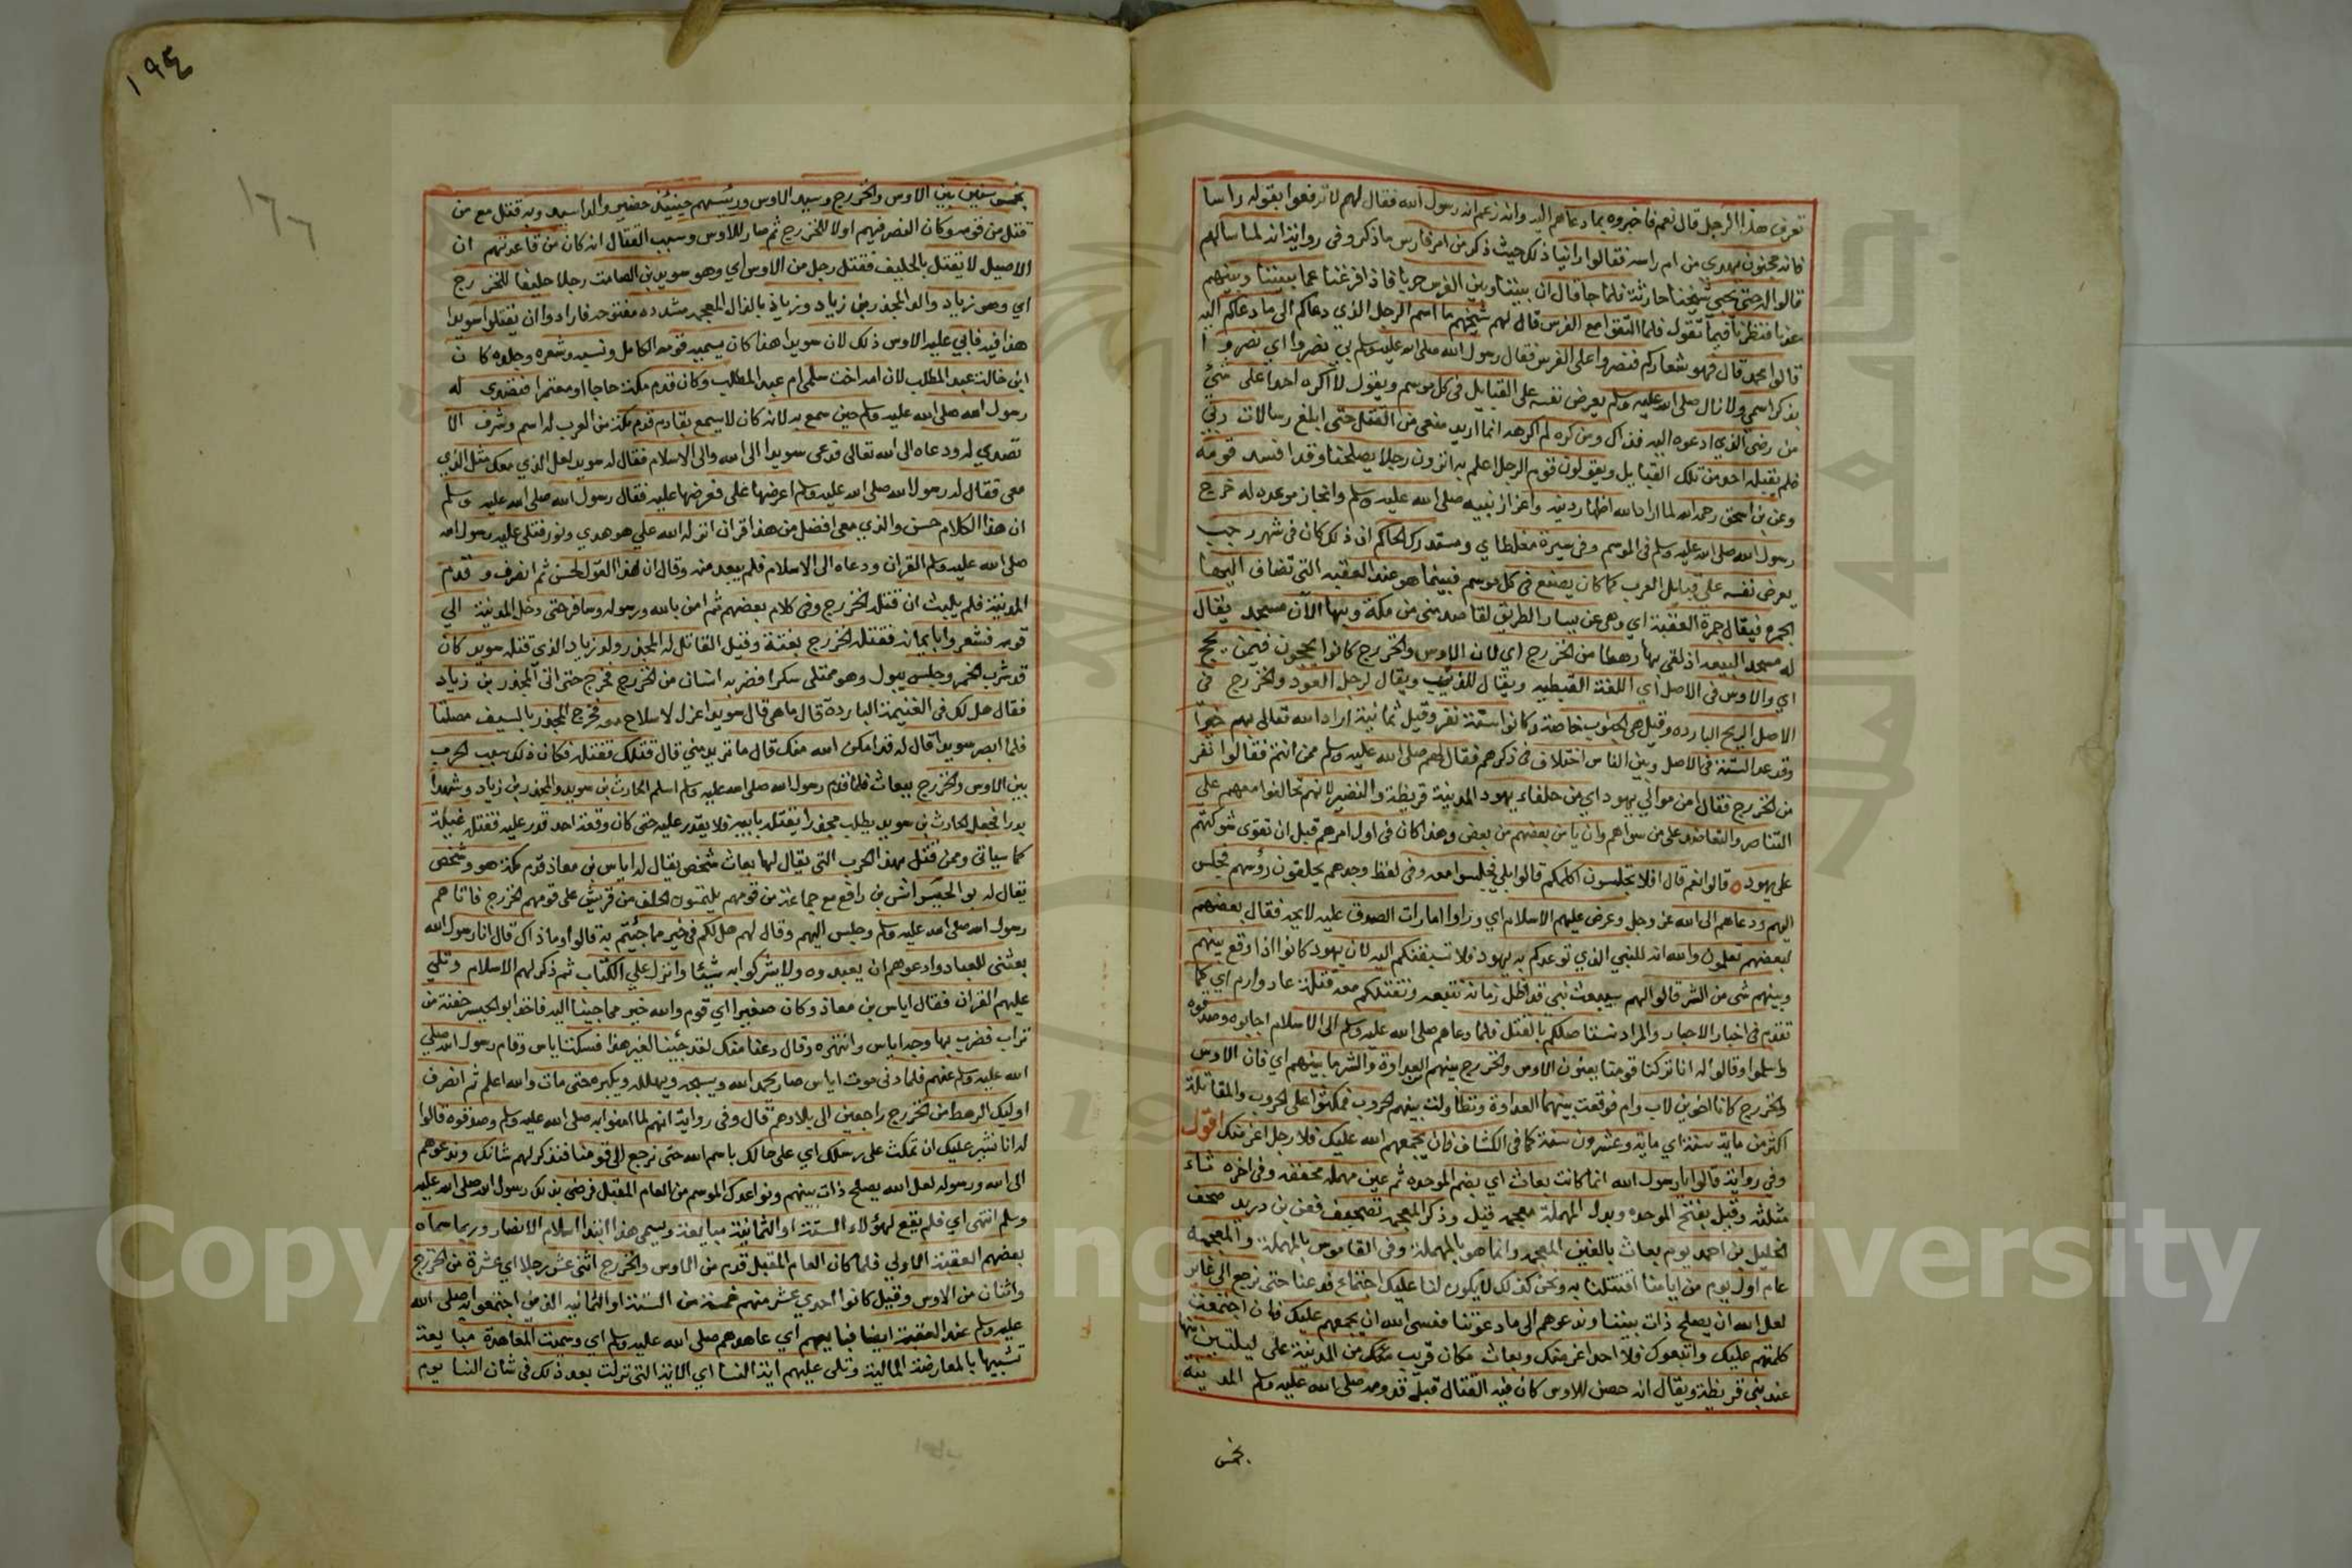 تعرف هذا الرجل قال نعم فاخبروه بما دعاهم اليه وانه زعم انه رسول الله فقال لهم لا ترفعوا بقوله راسا
فانه مجنون يهدي من ام راسه فقالوا راينا ذلك حيث ذكر من امر فارس ما ذكر وفي رواية انه لما سالهم
قالوا له حتى يجي شيخنا حارثة فلما جا قال ان بيننا وبين الفرس حربا فاذا فرغنا عما بيننا وبينهم
عدنا فنظرنا فيما تقول فلما التقوا مع الفرس قال لهم شيخهم ما اسم الرجل الذي دعاكم الى ما دعاكم اليه
قالوا محمد قال فهو شعاركم فنصروا على الفرس فقال رسول الله صلى الله عليه وسلم بي نصروا اي نصروا
بذكر اسمي ولا زال صلى الله عليه وسلم يعرض نفسه على القبايل في كل موسم ويقول لا اكره احدا على شئ
من رضي الذي ادعوه اليه فذاك ومن كره لم اكرهه انما اريد منعي من القتل حتى ابلغ رسالات ربي
فلم يقبله احد من تلك القبايل ويقولون قوم الرجل اعلم به اترون رجلا يصلحنا وقد افسد قومه
وعن بن اسحق رحمه الله لما اراد الله اظهار دينه واعزاز نبيه صلى الله عليه وسلم وانجاز موعده له خرج
رسول الله صلى الله عليه وسلم في الموسم وفي سيرة مغلطاي ومستدرك الحاكم ان ذلك كان في شهر رجب
يعرض نفسه على قبايل العرب كما كان يصنع في كل موسم فبينما هو عند العقبه التي تضاف اليها
الجمره فيقال جمرة العقبة اي وهي عن يسار الطريق لقاصد منى من مكة وبها الآن مسجد يقال
له مسجد البيعه اذ لقي بها رهطا من الخزرج اي لان الاوس والخزرج كانوا يحجون فيمن يحج
اي والاوس في الاصل اي اللغة العطيه ويقال للذئب ويقال لرجل العود والخزرج في
الاصل الريح البارده وقيل هي الجنوب خاصة وكانوا ستة نفر وقيل ثمانية اراد الله تعالى بهم خيرا
وقد عد الستة في الاصل وبين الناس اختلاف في ذكرهم فقال لهم صلى الله عليه وسلم ممن انتم فقالوا نفر
من الخزرج فقال امن موالي يهود اي من حلفاء يهود المدينة قريظة والنضير لانهم تحالفوا معهم على
التناصر والتعاضد على من سواهم وان يامن بعضهم من بعض وهذا كان في اول امرهم قبل ان تقوى شوكتهم
على يهود قالوا نعم قال افلا تجلسون اكلمكم قالوا بلى فجلسوا معه وفي لفظ وجدهم يحلقون رؤسهم فجلس
اليهم ودعاهم الى الله عز وجل وعرض عليهم الاسلام اي وراوا امارات الصدق عليه لايحه فقال بعضهم
لبعضهم تعلمون والله انه للنبي الذي توعدكم به يهود فلا تسبقنكم اليه لان يهود كانوا اذا وقع بينهم
وبينهم شي من الشر قالوا لهم سيبعث نبي قد اظل زمانه نتبعه ونقتلكم معه قتلة عاد وارم اي كما
تقدم في اخبار الاحبار والمراد نستاصلكم بالقتل فلما دعاهم صلى الله عليه وسلم الى الاسلام اجابوه وصدقوه
واسلموا وقالوا له انا تركنا قومنا يعنون الاوس والخزرج بينهم من العداوة والشر ما بينهم اي فان الاوس
والخزرج كانا اخوين لاب وام فوقعت بينهما العداوة وتطاولت بينهم الحروب فمكثوا على الحروب والمقاتلة
اكثر من ماية سنة اي ماية وعشرون سنة كما في الكشاف فان يجمعهم الله عليك فلا رجل اعز منك اقول
وفي رواية قالوا يا رسول الله انما كانت بعاث اي بضم الموحده ثم عين مهملة مخففه وفي اخره ثاء
مثلثه وقيل بفتح الموحده وبدل المهملة معجمه قيل وذكر المعجمه تصحيف فعن بن دريد صحف
الخليل بن احمد يوم بعاث بالغين المعجمه وانما هو بالمهملة وفي القاموس بالمهملة والمعجمه
عام اول يوم من ايامنا اقتتلنا به ونحن كذلك لا يكون لنا عليك اجتماع فدعنا حتى نرجع الى عشاير
لعل الله ان يصلح ذات بيننا وندعوهم الى ما دعوتنا فعسى الله ان يجمعهم عليك فان اجتمعت
كلمتهم عليك واتبعوك فلا احد اعز منك وبعاث مكان قريب من المدينة على ليلتين منها
عند بني قريظة ويقال انه حصن للاوس كان فيه القتال قبل قدومه صلى الله عليه وسلم المدينة
بخمس
١٩٤
١٦٦
بخمس سنين بين الاوس والخزرج وسيد الاوس ورئيسهم حينئذ حضير والد اسيد وبه قتل مع من
قتل من قومه وكان النصر فيهم اولا للخزرج ثم صار للاوس وسبب القتال انه كان من قاعدتهم ان
الاصيل لا يقتل بالحليف فقتل رجل من الاوس اي وهو سويد بن الصامت رجلا حليفا للخزرج
اي وهو زياد والد المجذر بن زياد وزياد بالذال المعجمه مشدده مفتوحه فارادوا ان يقتلوا سويدا
هذا فيه فابي عليه الاوس ذلك لان سويدا هذا كان يسميه قومه الكامل ونسبه وشعره وجلده كان
ابن خالت عبد المطلب لان امه اخت سلمى ام عبد المطلب وكان قدم مكة حاجا او معتمرا فتصدى له
رسول الله صلى الله عليه وسلم حين سمع به لانه كان لا يسمع بقادم قدم مكة من العرب له اسم وشرف الا
تصدي له ودعاه الى الله تعالى فدعى سويدا الى الله والى الاسلام فقال له سويد لعل الذي معك مثل الذي
معي فقال له رسول الله صلى الله عليه وسلم اعرضها على فعرضها عليه فقال رسول الله صلى الله عليه وسلم
ان هذا الكلام حسن والذي معي افضل من هذا قران انزله الله علي هو هدي ونور فتلى عليه رسول الله
صلى الله عليه وسلم القران ودعاه الى الاسلام فلم يبعد منه وقال ان هذا القول لحسن ثم انصرف وقدم
المدينة فلم يلبث ان قتله الخزرج وفي كلام بعضهم ثم امن بالله ورسوله وسافر حتى دخل المدينة الى
قومه فشعروا بايمانه فقتله الخزرج بغتة وقيل القاتل له المجذر ولد زياد الذي قتله سويد كان
قد شرب الخمر وجلس يبول وهو ممتلى سكرا فضربه انسان من الخزرج فخرج حتى اتى المجذر بن زياد
فقال هل لك في الغنيمة البارده قال ما هي قال سويد اعزل لا سلاح معه فخرج المجذر بالسيف مصلتا
فلما ابصر سويدا قال له قد امكن الله منك قال ما تريد مني قال قتلك فقتله فكان ذلك سبب الحرب
بين الاوس والخزرج ببعاث فلما قدم رسول الله صلى الله عليه وسلم اسلم الحارث بن سويد والمجذر بن زياد وشهدا
بدرا فجعل الحارث بن سويد يطلب مجذرا يقتله بابيه فلا يقدر عليه حتى كان وقعة احد قدر عليه فقتله غيلة
كما سياتي وممن قتل بهذا الحرب التي يقال لها بعاث شخص يقال له اياس بن معاذ قدم مكة هو وشخص
يقال له بو الحيسر انس بن رافع مع جماعة من قومهم يلتمسون الحلف من قريش على قومهم الخزرج فاتاهم
رسول الله صلى الله عليه وسلم وجلس اليهم وقال لهم هل لكم في خير مما جئتم به قالوا وما ذاك قال انا رسول الله
بعثني للعباد وادعوهم ان يعبدوه ولا يشركوا به شيئا وانزل علي الكتاب ثم ذكر لهم الاسلام وتلي
عليهم القران فقال اياس بن معاذ وكان صغيرا اي قوم والله خير مما جينا اليه فاخذ ابو الحيسر حفنة من
تراب فضرب بها وجه اياس وانتهره وقال دعنا منك لقد جئنا لغير هذا فسكت اياس وقام رسول الله صلى
الله عليه وسلم عنهم فلما دنى موت اياس صار يحمد الله ويسبحه ويهلله ويكبره حتى مات والله اعلم ثم انصرف
اوليك الرهط من الخزرج راجعين الى بلادهم قال وفي رواية انهم لما امنوا به صلى الله عليه وسلم وصدقوه قالوا
له انا نشير عليك ان تمكث على رسلك اي على حالك باسم الله حتى نرجع الى قومنا فنذكر لهم شانك وندعوهم
الى الله ورسوله لعل الله يصلح ذات بينهم ونواعدك الموسم من العام المقبل فرضي بذلك رسول الله صلى الله عليه
وسلم انتهى اي فلم يقع لهؤلاء الستة او الثمانية مبايعة ويسمى هذا ابتدا اسلام الانصار وربما سماه
بعضهم العقبة الاولي فلما كان العام المقبل قدم من الاوس والخزرج اثنى عشر رجلا اي عشرة من الخزرج
واثنان من الاوس وقيل كانوا احدي عشر منهم خمسة من الستة او الثمانيه الذين اجتمعوا به صلى الله
عليه وسلم عند العقبة ايضا فبايعهم اي عاهدهم صلى الله عليه وسلم اي وسميت المعاهدة مبايعة
تشبيها بالمعارضة المالية وتلى عليهم اية النسا اي الاية التي نزلت بعد ذلك في شان النسا يوم